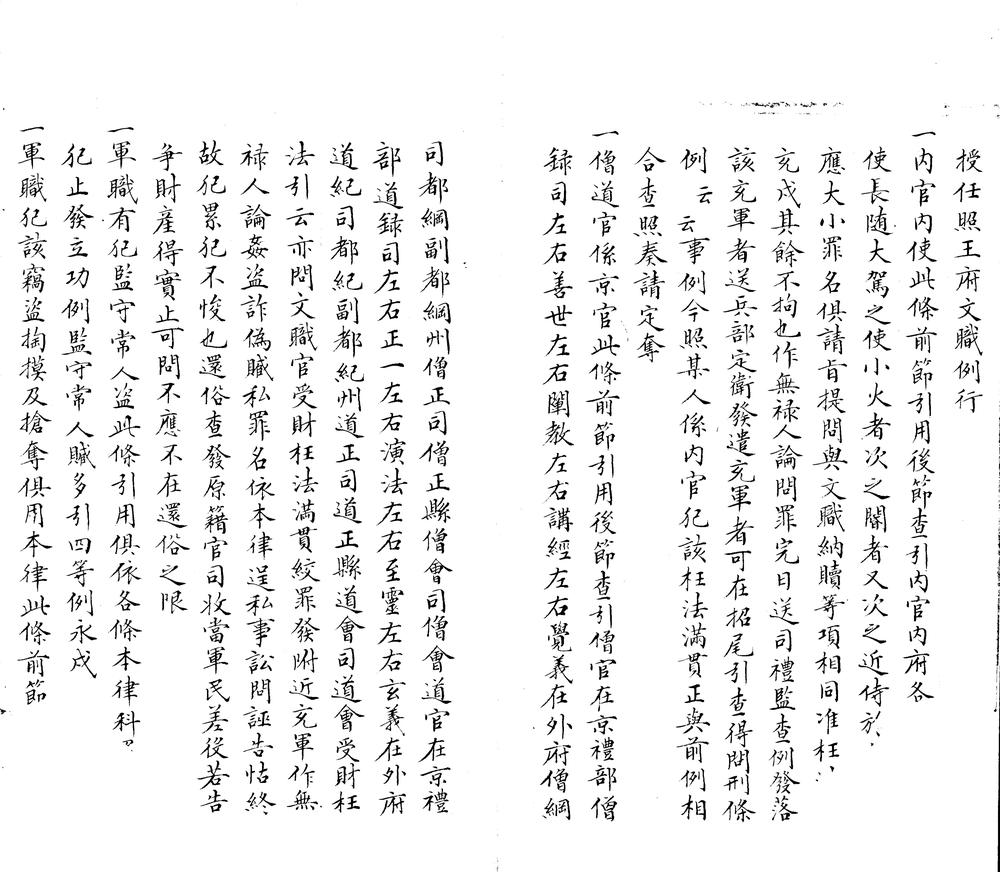 授任照王府文職例行
一內官內使此條前節引用後節查引內官內府各
使長随大駕之使小火者次之閽者又次之近侍於
應大小罪名俱請旨提問與文職納贖等項相同准枉
充戍其餘不拘也作無禄人論問罪完日送司禮監查例發落
該充軍者送兵部定衛發遣充軍者可在招尾引查得問刑條
例云云事例今照某人係內官犯該枉法滿貫正與前例相
合查照奏請定奪
一僧道官係京官此條前節引用後節查引僧官在京禮部僧
録司左右善世左右闡教左右講經左右覺義在外府僧綱
司都綱副都綱州僧正司僧正縣僧會司僧會道官在京禮
部道録司左右正一左右演法左右至靈左右玄義在外府
道紀司都紀副都紀州道正司道正縣道會司道會受財枉
法引云亦問文職官受財枉法滿貫絞罪發附近充軍作無
禄人論姦盗詐偽贓私罪名依本律逞私事訟問誣告怙終
故犯累犯不悛也還俗查發原籍官司收當軍民差役若告
爭財產得實止可問不應不在還俗之限
一軍職有犯監守常人盗此條引用俱依各條本律科
犯止發立功例監守常人贓多引四等例永戍
一軍職犯該竊盗掏摸及搶奪俱用本律此條前節